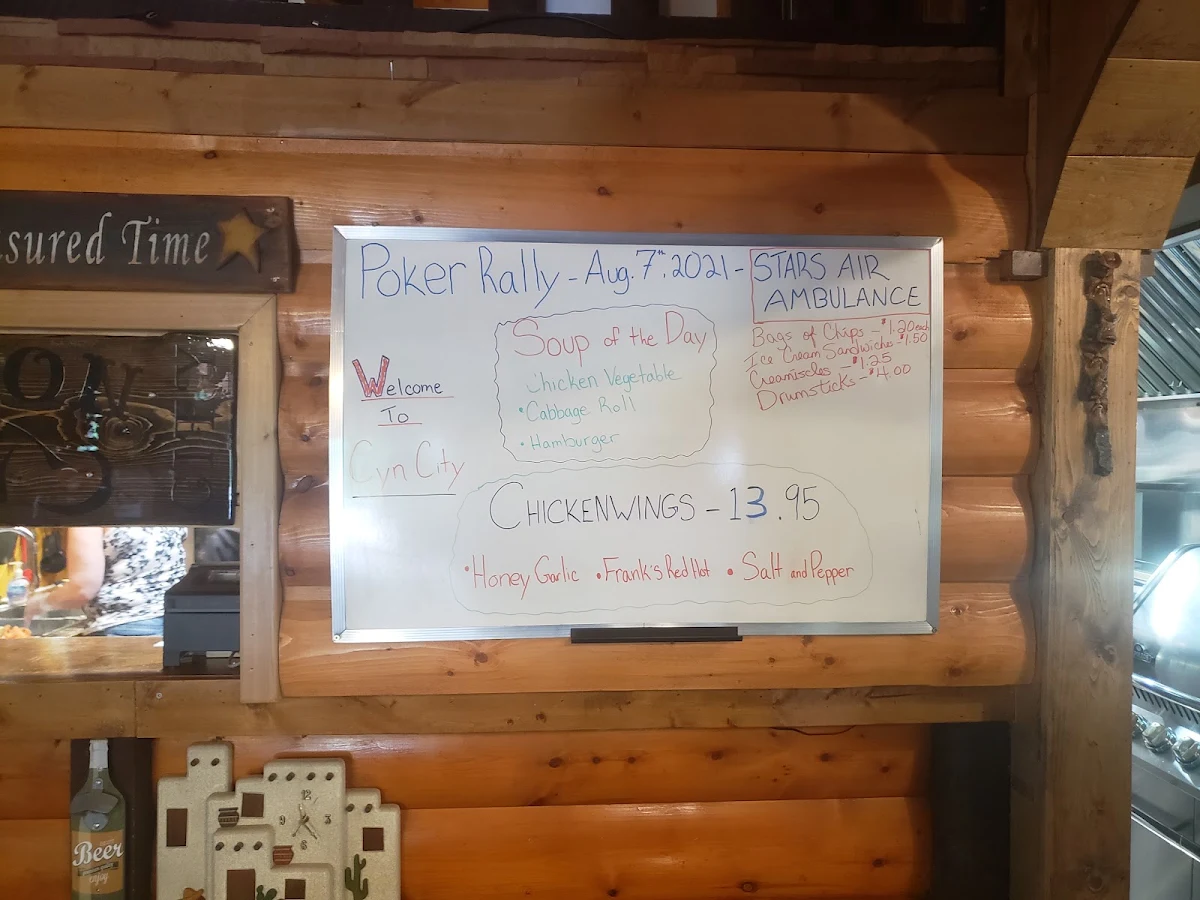 sured Time
Poker Rally - Aug. 7th, 2021 - STARS AIR
AMBULANCE
Bags of Chips - $1.20 each
Ice Cream Sandwiches - $1.50
Creamiscles - $1.25
Drumsticks - $4.00
Soup of the Day
Chicken Vegetable
• Cabbage Roll
• Hamburger
Welcome
To
Cyn City
CHICKENWINGS - 13.95
• Honey Garlic • Frank's Red Hot • Salt and Pepper
12
9 3
6
Beer